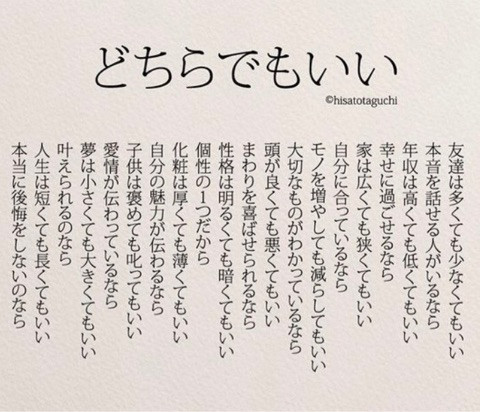 どちらでもいい
©hisatotaguchi
友達は多くても少なくてもいい
本音を話せる人がいるなら
年収は高くても低くてもいい
幸せに過ごせるなら
家は広くても狭くてもいい
自分に合っているなら
モノを増やしても減らしてもいい
大切なものがわかっているなら
頭が良くても悪くてもいい
まわりを喜ばせられるなら
性格は明るくても暗くてもいい
個性の1つだから
化粧は厚くても薄くてもいい
自分の魅力が伝わるなら
子供は褒めても叱ってもいい
愛情が伝わっているなら
夢は小さくても大きくてもいい
叶えられるのなら
人生は短くても長くてもいい
本当に後悔をしないのなら